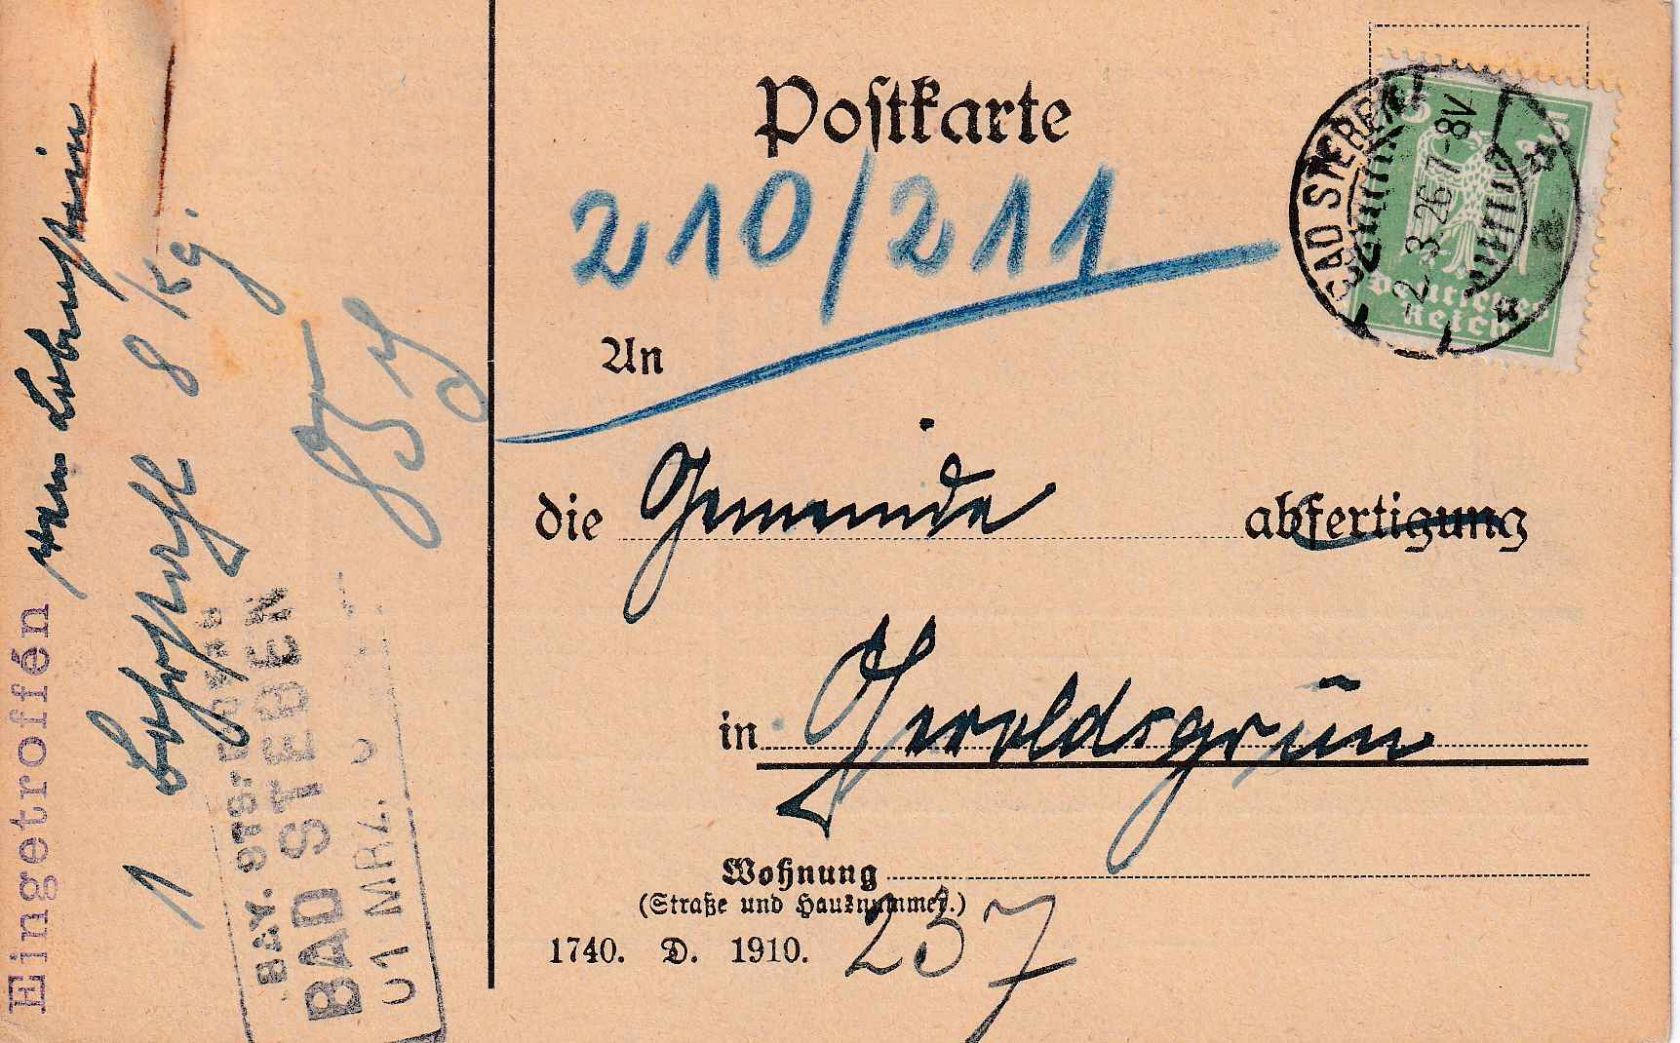 Eingetroffen
von Lobenstein
1 8 Kg.
BAD STEBEN
01 MRZ.
Postkarte
210/211
An
die Gemeinde abfertigung
in Geroldsgrün
Wohnung
(Straße und Hausnummer.)
1740. D. 1910. 237
BAD STEBEN
2.3.26.7-8V
5 5
Deutsches
Reich